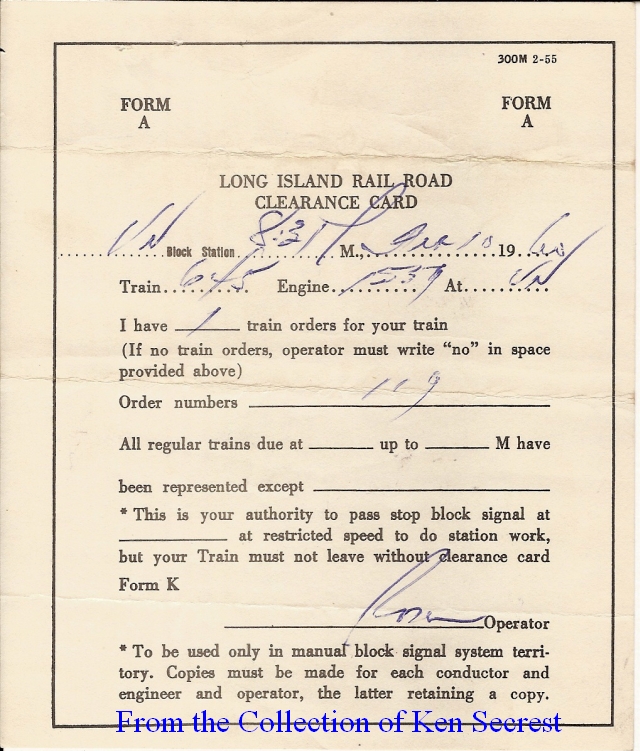 300M 2-55
FORM A FORM A
LONG ISLAND RAIL ROAD
CLEARANCE CARD
Block Station M., 10 19 60
Train 645 Engine 1557 At
I have 1 train orders for your train
(If no train orders, operator must write “no” in space
provided above)
Order numbers 119
All regular trains due at up to M have
been represented except
* This is your authority to pass stop block signal at
at restricted speed to do station work,
but your Train must not leave without clearance card
Form K
Operator
* To be used only in manual block signal system terri-
tory. Copies must be made for each conductor and
engineer and operator, the latter retaining a copy.
From the Collection of Ken Seerest